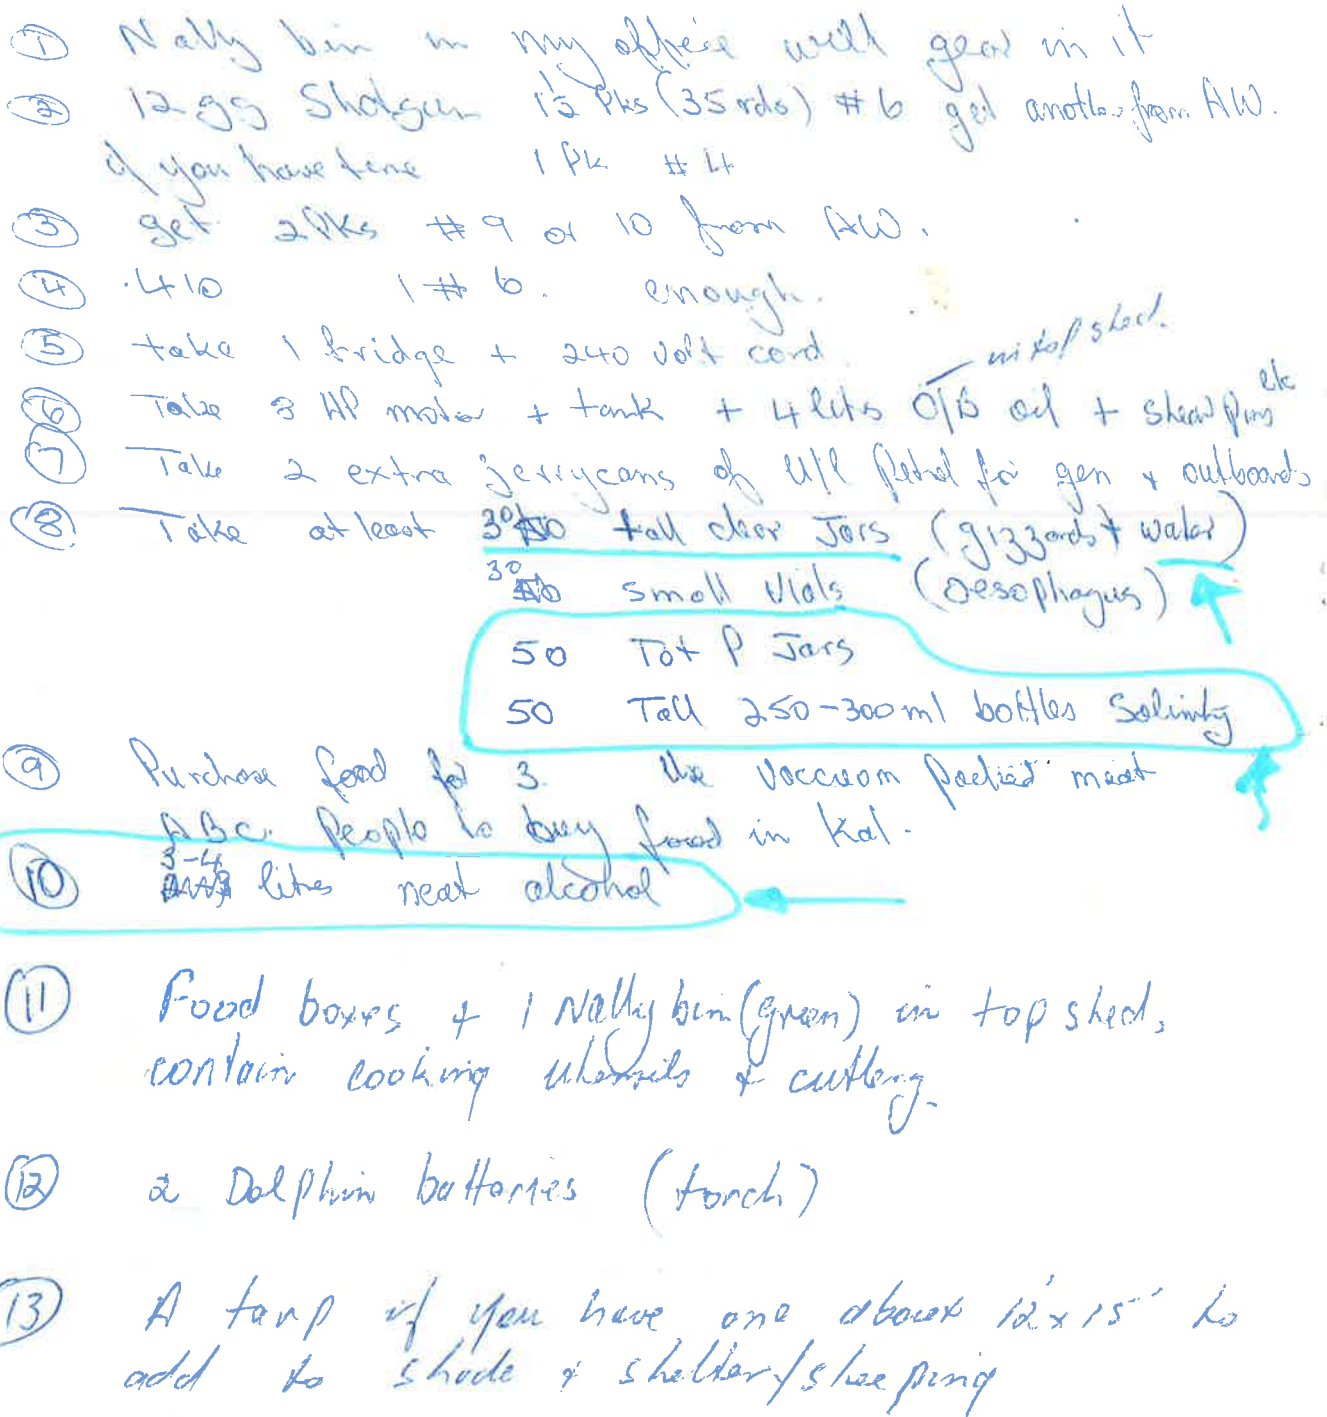 ① Nally bin in my office with gear in it
② 12 gg Shotgun 1½ Pks (35 rds) #6 get another from AW.
if you have time 1 Pk #4
③ get 2 Pks #9 or 10 from AW.
④ .410 1 #6. enough.
⑤ take 1 fridge + 240 volt cord
in top shed.
⑥ Take 3 HP motor + tank + 4 lits O/B oil + shear pins etc
⑦ Take 2 extra jerrycans of U/L Petrol for gen + outboards
⑧ Take at least 30 tall clear Jars (gizzards + water)
30 small vials (oesophagus)
50 Tot P Jars
50 Tall 250-300ml bottles Salinity
⑨ Purchase food for 3. Use Vaccuom packed meat
ABC. People to buy food in Kal.
⑩ 3-4 litres neat alcohol
⑪ Food boxes + 1 Nally bin (green) in top shed,
contain cooking utensils + cutlery.
⑫ 2 Dolphin batteries (torch)
⑬ A tarp if you have one about 12'x15' to
add to shade + shelter/sleeping